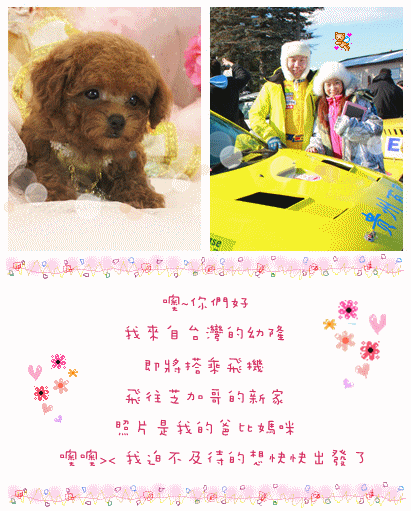 噢~你們好
我來自台灣的幼隆
即將搭乘飛機
飛往芝加哥的新家
照片是我的爸比媽咪
噢噢>< 我迫不及待的想快快出發了